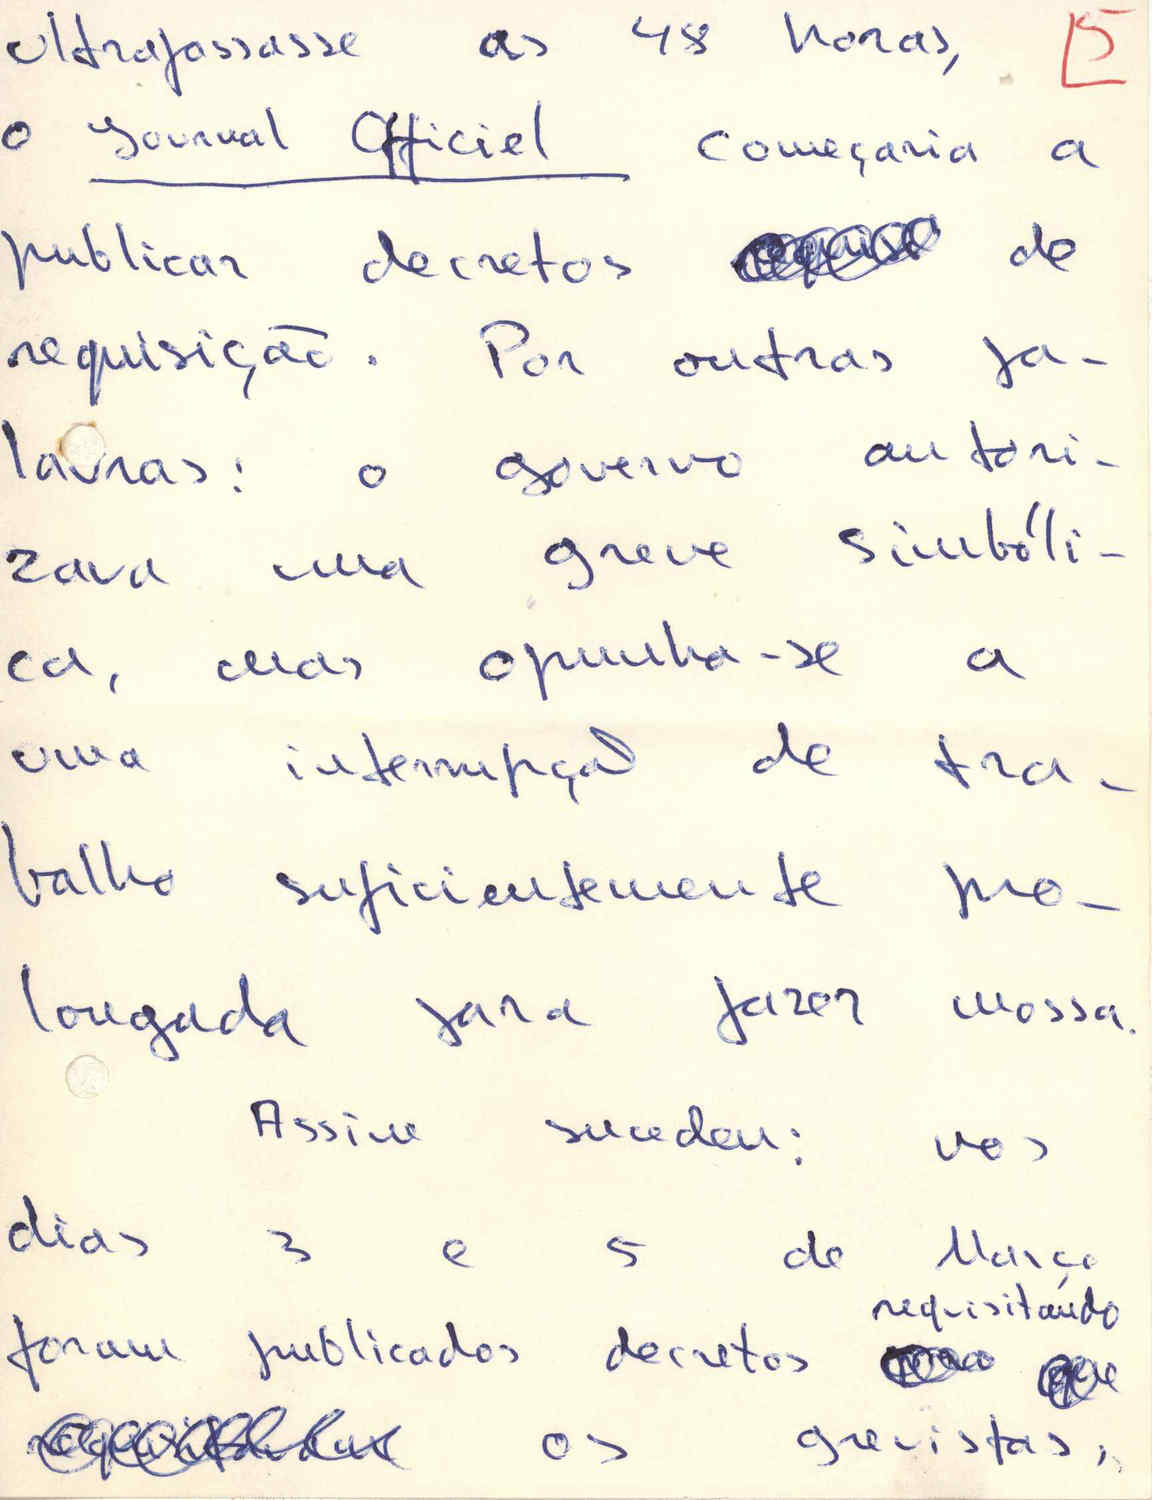 ultrapassasse as 48 horas, 5
o Journal Officiel começaria a
publicar decretos de
requisição. Por outras pa-
lavras: o governo autori-
zava uma greve simbóli-
ca, mas opunha-se a
uma interrupção de tra-
balho suficientemente pro-
longada para fazer mossa.
Assim sucedeu: nos
dias 3 e 5 de Março
requisitando
foram publicados decretos que
os grevistas,